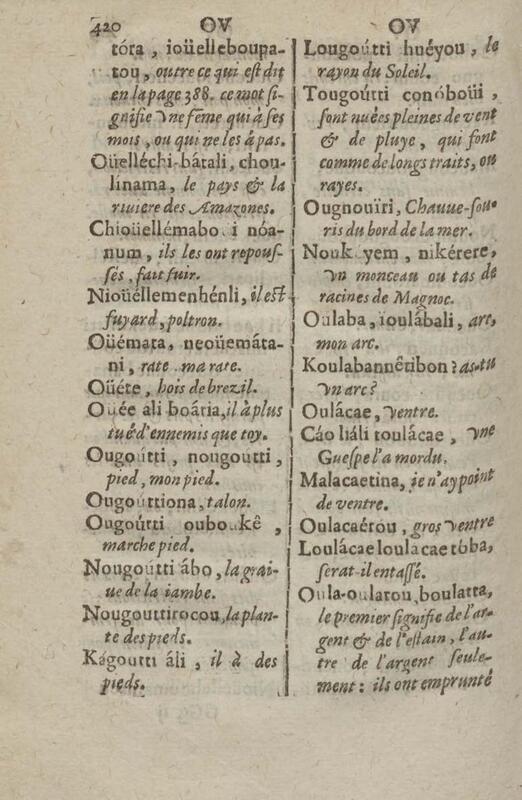 420 OV
tóra, ioüelleboupa-
tou, outre ce qui est dit
en la page 388. ce mot si-
gnifie vne féme qui à ses
mois, ou qui ne les à pas.
Oüelléchi-bátali, chou-
línama, le pays & la
riuiere des Amazones.
Chioüellémabo i nóa-
num, ils les ont repous-
sés, fait fuir.
Nioüéllemenhénli, il est
fuyard, poltron.
Oüémata, neoüemáta-
ni, rate ma rate.
Oüéte, bois de brezil.
Ouée ali boâtia, il à plus
tué d'ennemis que toy.
Ougoútti, nougoutti,
pied, mon pied.
Ougoúttiona, talon.
Ougoútti ouboukê,
marche pied.
Nougoútti ábo, la grai-
ue de la iambe.
Nougouttirocou, la plan-
te des pieds.
Kágoutti áli, il à des
pieds.
OV
Lougoútti huéyou, le
rayon du Soleil.
Tougoútti conóboüi,
sont nuées pleines de vent
& de pluye, qui font
comme de longs traits, ou
rayes.
Ougnouïri, Chauue-sou-
ris du bord de la mer.
Nouk yem, nikérere,
vn monceau ou tas de
racines de Magnoc.
Oúlaba, ïoulábali, arc,
mon arc.
Koulabannêtibon? as-tu
vn arc?
Oulácae, ventre.
Cáo liáli toulácae, vne
Guespe l'a mordu.
Malacaetina, je n'ay point
de ventre.
Oulacaérou, gros ventre
Loulácae loulácae tóba,
serat-il entassé.
Oula-oularou, boulatta,
le premier signifie de l'ar-
gent & de l'estain, l'au-
tre de l'argent seule-
ment: ils ont emprunté